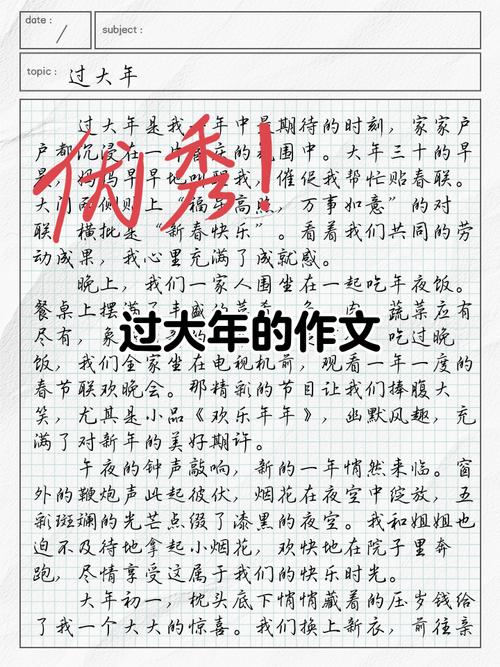 date :
subject :
topic : 过大年
过大年是我 年中最期待的时刻，家家户
户都沉浸在一片 庆的氛围中。大年三十的早
妈妈早早地叫醒我，催促我帮忙贴春联。
大门两侧贴上“福 高照，万事如意”的对
联，横批是“新春快乐”。看着我们共同的劳
动成果，我心里充满了成就感。
优秀！
晚上，我们一家人围坐在一起吃年夜饭。
餐桌上摆满了 蔬菜应有
尽有，象 吃过晚
过大年的作文
饭，我们全家坐在电视机前，观看一年一度的
春节联欢晚会。那精彩的节目让我们捧腹大
笑，尤其是小品《欢乐年年》，幽默风趣，充
满了对新年的美好期许。
午夜的钟声敲响，新的一年悄然来临。窗
外的鞭炮声此起彼伏，烟花在夜空中绽放，五
彩斑斓的光芒点缀了漆黑的夜空。我和姐姐也
迫不及待地拿起小烟花，欢快地在院子里奔
跑，尽情享受这属于我们的快乐时光。
大年初一，枕头底下悄悄藏着的压岁钱给
了我一个大大的惊喜。我们换上新衣，前往亲